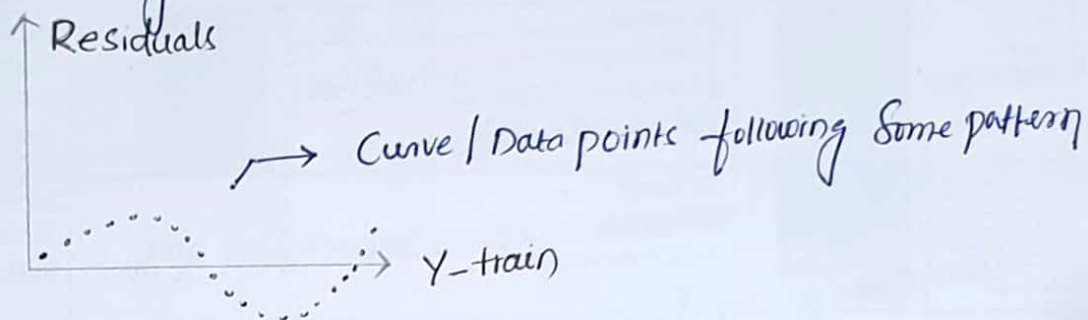 Residuals
Curve / Data points following Some pattern
Y-train